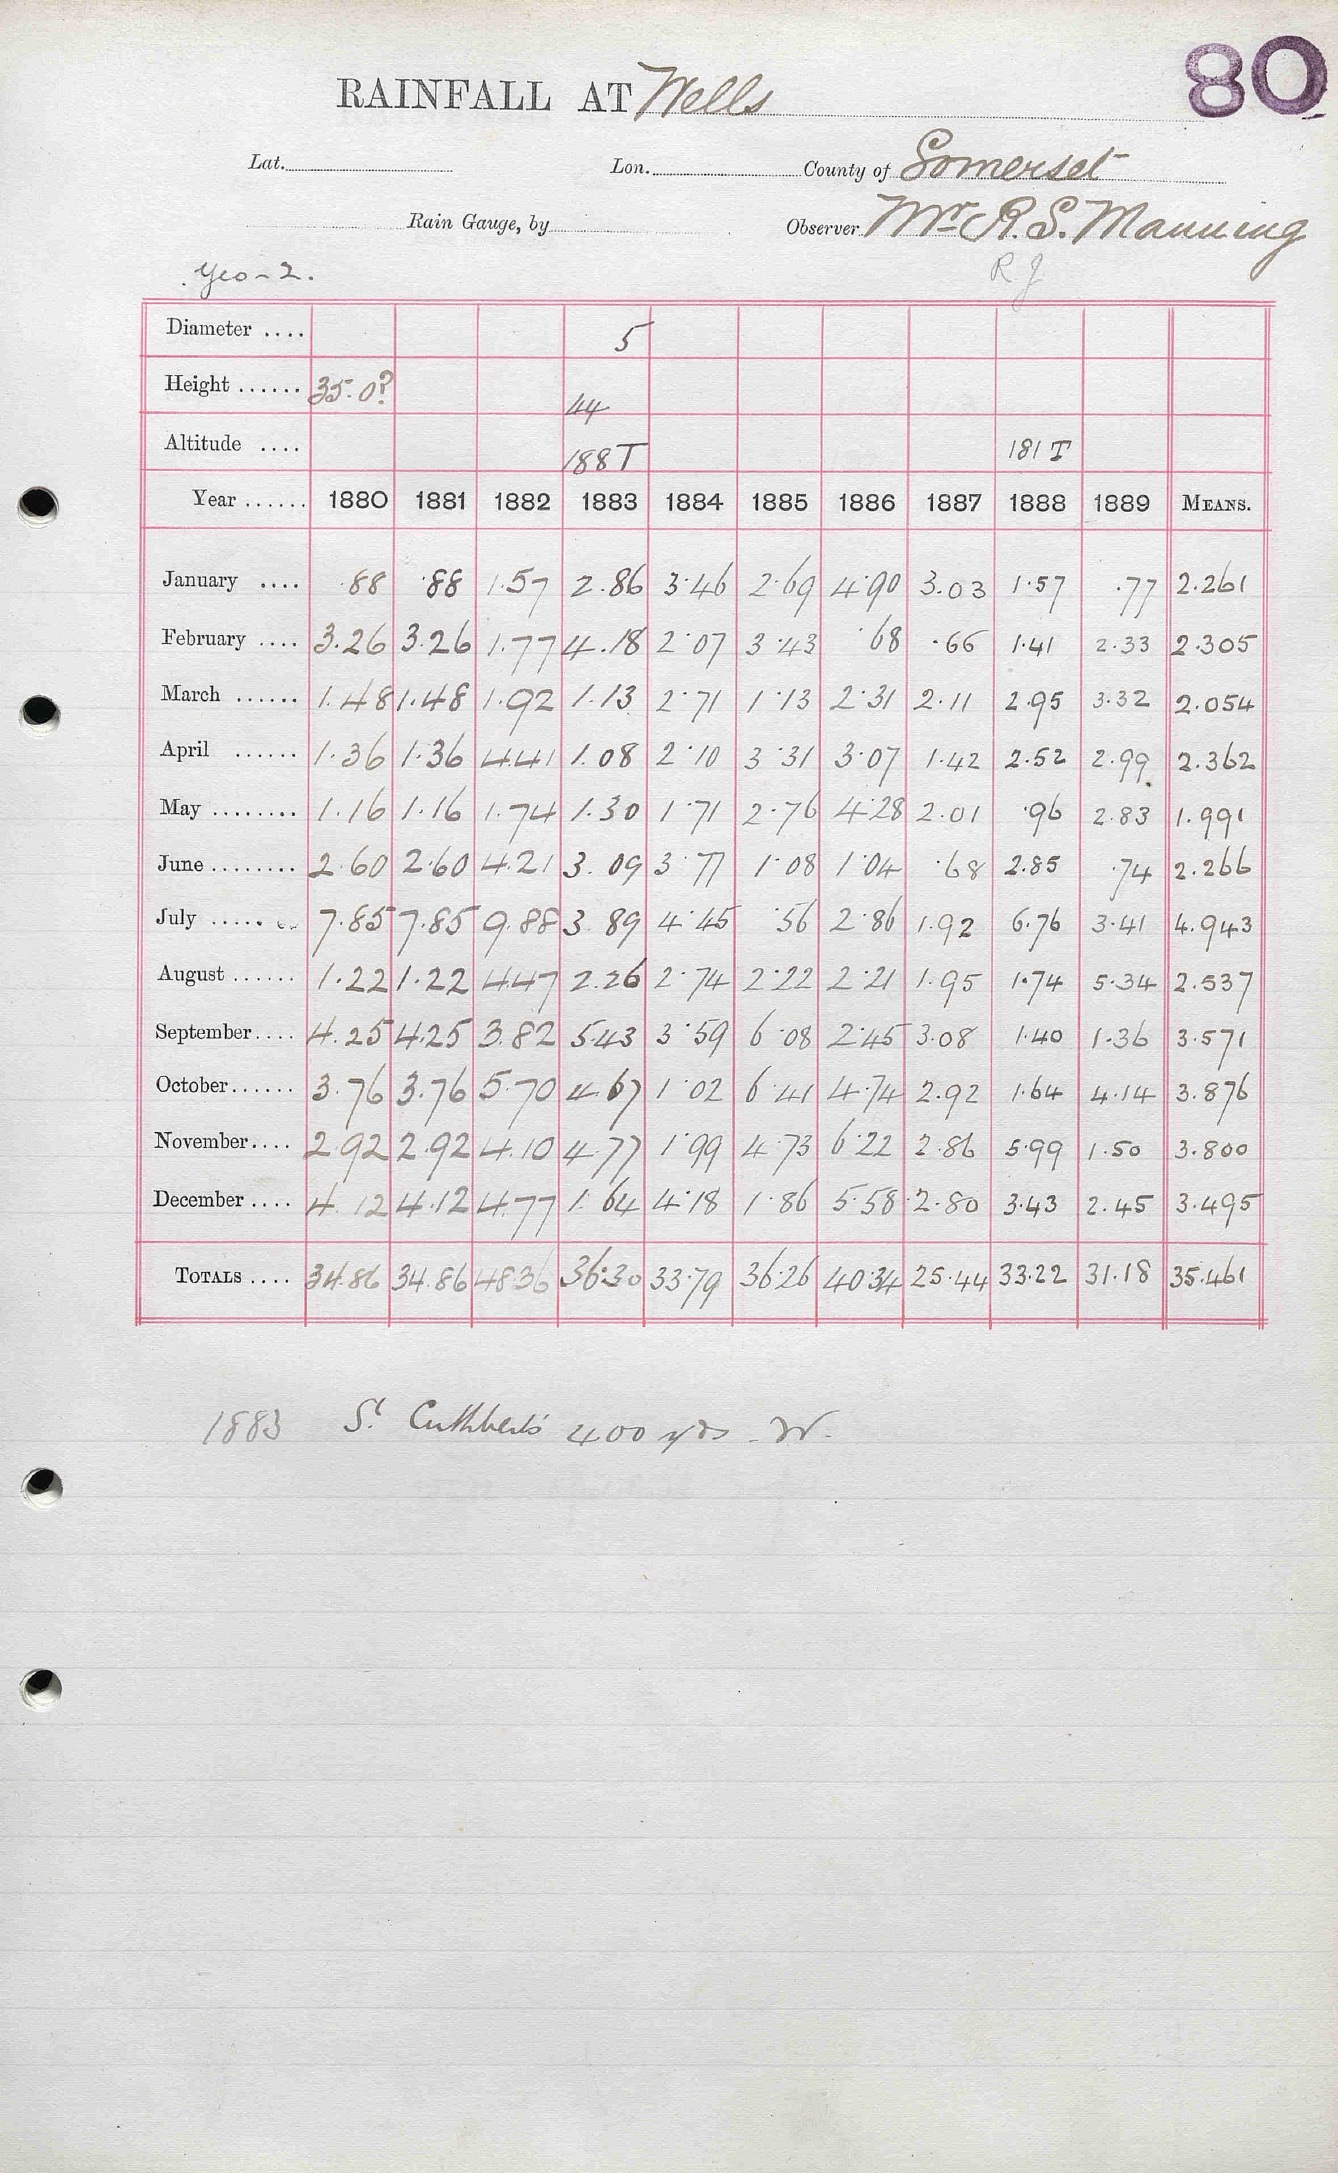 80
RAINFALL AT Wells
Lat. Lon. County of Somerset
Rain Gauge, by Observer Mr R. S. Manning
Yeo - 2. R J
Diameter .... 5
Height ...... 35.0? 44
Altitude .... 188 T 181 T
Year ...... 1880 1881 1882 1883 1884 1885 1886 1887 1888 1889 MEANS.
January .... .88 .88 1.57 2.86 3.46 2.69 4.90 3.03 1.57 .77 2.261
February .... 3.26 3.26 1.77 4.18 2.07 3.43 .68 .66 1.41 2.33 2.305
March ...... 1.48 1.48 1.92 1.13 2.71 1.13 2.31 2.11 2.95 3.32 2.054
April ...... 1.36 1.36 4.41 1.08 2.10 3.31 3.07 1.42 2.52 2.99 2.362
May ........ 1.16 1.16 1.74 1.30 1.71 2.76 4.28 2.01 .96 2.83 1.991
June ........ 2.60 2.60 4.21 3.09 3.77 1.08 1.04 .68 2.85 .74 2.266
July ...... 7.85 7.85 9.88 3.89 4.45 .56 2.86 1.92 6.76 3.41 4.943
August ...... 1.22 1.22 4.47 2.26 2.74 2.22 2.21 1.95 1.74 5.34 2.537
September .... 4.25 4.25 3.82 5.43 3.59 6.08 2.45 3.08 1.40 1.36 3.571
October ...... 3.76 3.76 5.70 4.67 1.02 6.41 4.74 2.92 1.64 4.14 3.876
November .... 2.92 2.92 4.10 4.77 1.99 4.73 6.22 2.86 5.99 1.50 3.800
December .... 4.12 4.12 4.77 1.64 4.18 1.86 5.58 2.80 3.43 2.45 3.495
TOTALS .... 34.86 34.86 48.36 36.30 33.79 36.26 40.34 25.44 33.22 31.18 35.461
1883 St Cuthberts 400 yds W.